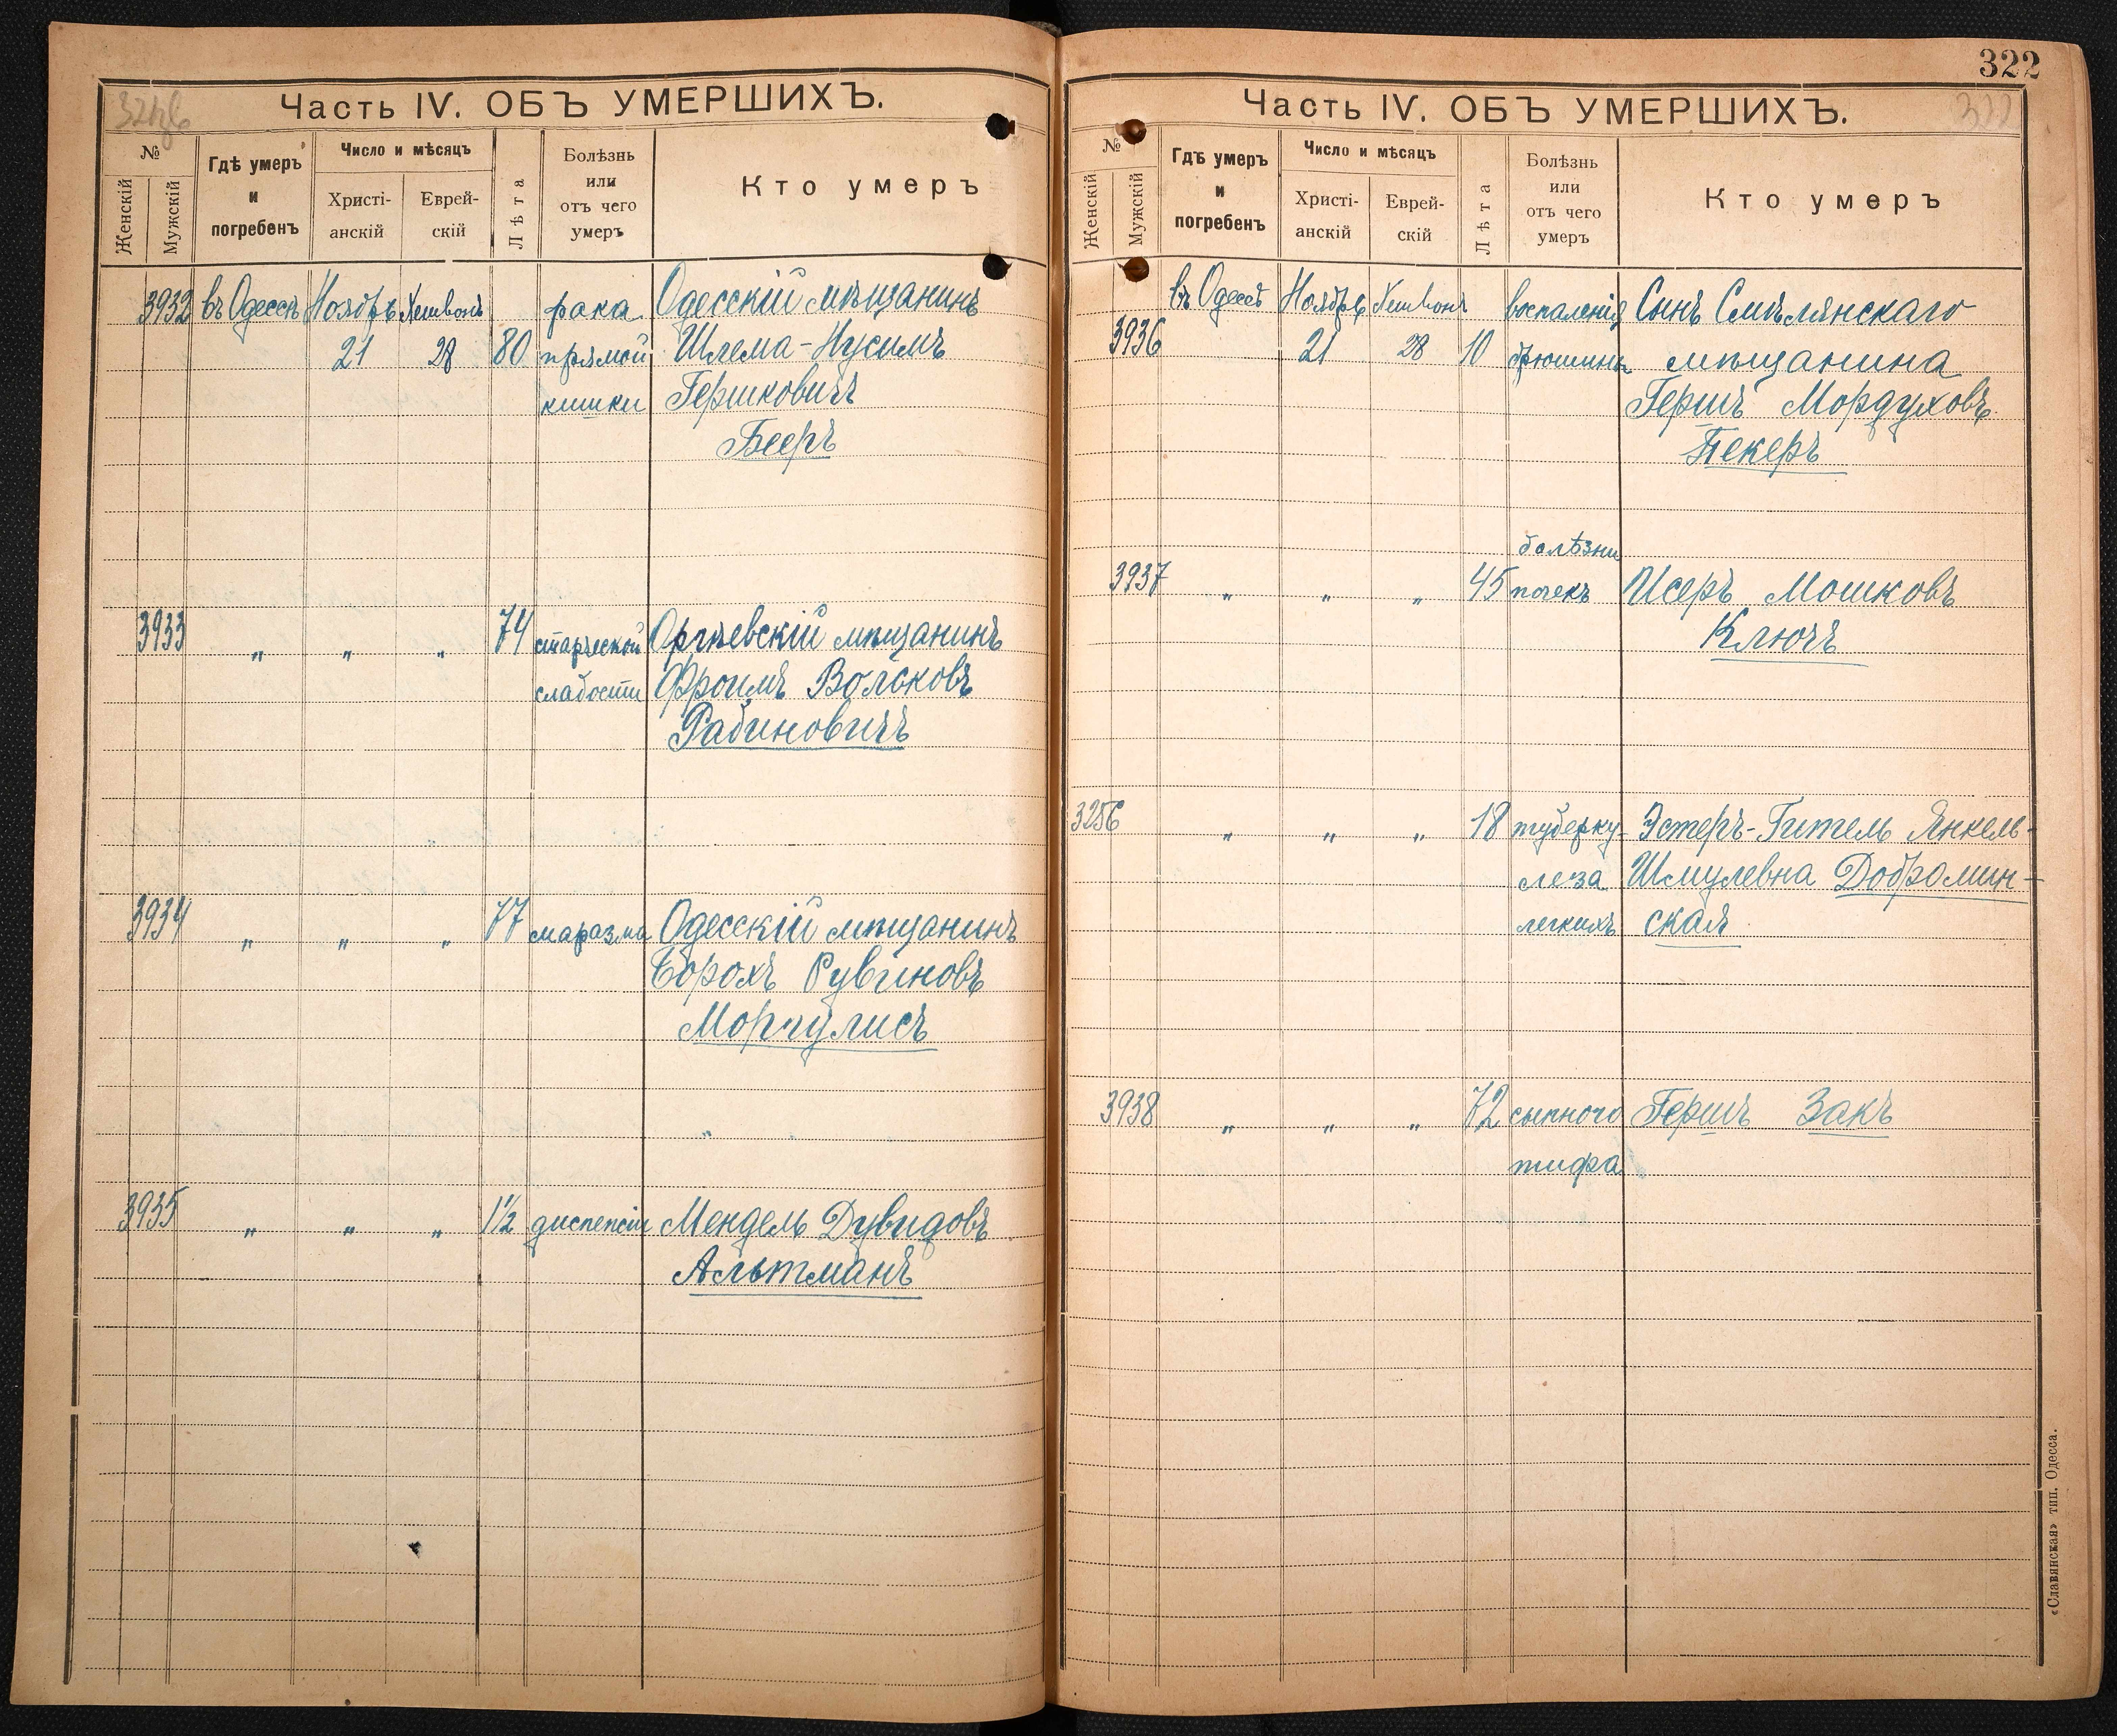 Часть IV. ОБЪ УМЕРШИХЪ.
№
Женскій
Мужскій
Гдѣ умеръ
и
погребенъ
Число и мѣсяцъ
Христі-
анскій
Еврей-
скій
Лѣта
Болѣзнь
или
отъ чего
умеръ
Кто умеръ
3932 въ Одессѣ Ноябрь Хешвонъ рака Одесскій мѣщанинъ
21 28 80 прямой Шлема-Нусимъ
кишки Гершковичъ
Бееръ
3933 „ „ „ 74 старческой Оргѣевскій мѣщанинъ
слабости Фроимъ Вольковъ
Рабиновичъ
3934 „ „ „ 77 маразма Одесскій мѣщанинъ
Борохъ Рувиновъ
Моргулисъ
3935 „ „ „ 1½ диспепсіи Мендель Дувидовъ
Альтманъ
322
Часть IV. ОБЪ УМЕРШИХЪ.
322
№
Женскій
Мужскій
Гдѣ умеръ
и
погребенъ
Число и мѣсяцъ
Христі-
анскій
Еврей-
скій
Лѣта
Болѣзнь
или
отъ чего
умеръ
Кто умеръ
въ Одессѣ Ноябрь Хешвонъ воспаленія Сынъ Смѣлянскаго
3936 21 28 10 брюшины мѣщанина
Гершъ Мордуховъ
Пекеръ
болѣзни
3937 „ „ „ 45 почекъ Исеръ Мошковъ
Ключъ
3256 „ „ „ 18 туберку- Эстеръ-Гитель Янкель-
леза Шмулевна Добромин-
легкихъ ская
3938 „ „ „ 72 сыпного Гершъ Закъ
тифа
«Славянская» тип. Одесса.